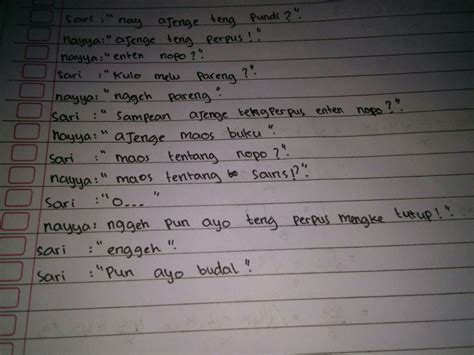 sari : "nay ajenge teng pundi?".
nayya: "ajenge teng perpus!".
nayya: "enten nopo?".
sari : "kulo melu pareng?".
nayya: "nggeh pareng".
sari : "sampean ajenge tengperpus enten nopo?".
nayya: "ajenge maos buku".
sari : "maos tentang nopo?".
nayya: "maos tentang sains!?".
sari : "o..."
nayya: nggeh pun ayo teng perpus mengke tutup!".
sari : "enggeh".
sari : "pun ayo budal".